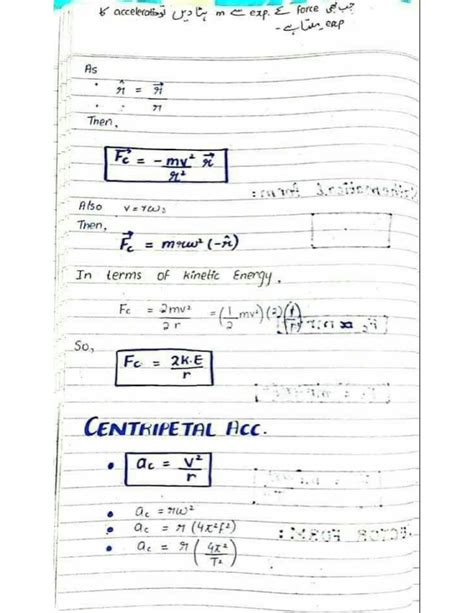 جب بھی force کے exp. سے m ہٹا دیں تو acceleration کا
exp ملتا ہے۔
As
r̂ = r⃗
r
Then,
F⃗c = -mv² r⃗
r²
Also v = rω,
Then,
F⃗c = mrω² (-r̂)
In terms of kinetic Energy,
Fc = 2mv² = (1/2 mv²)(2)(1/r)
2r
So,
Fc = 2K.E
r
CENTRIPETAL ACC.
• ac = v²
r
• ac = rω²
• ac = r (4π²f²)
• ac = r (4π²/T²)